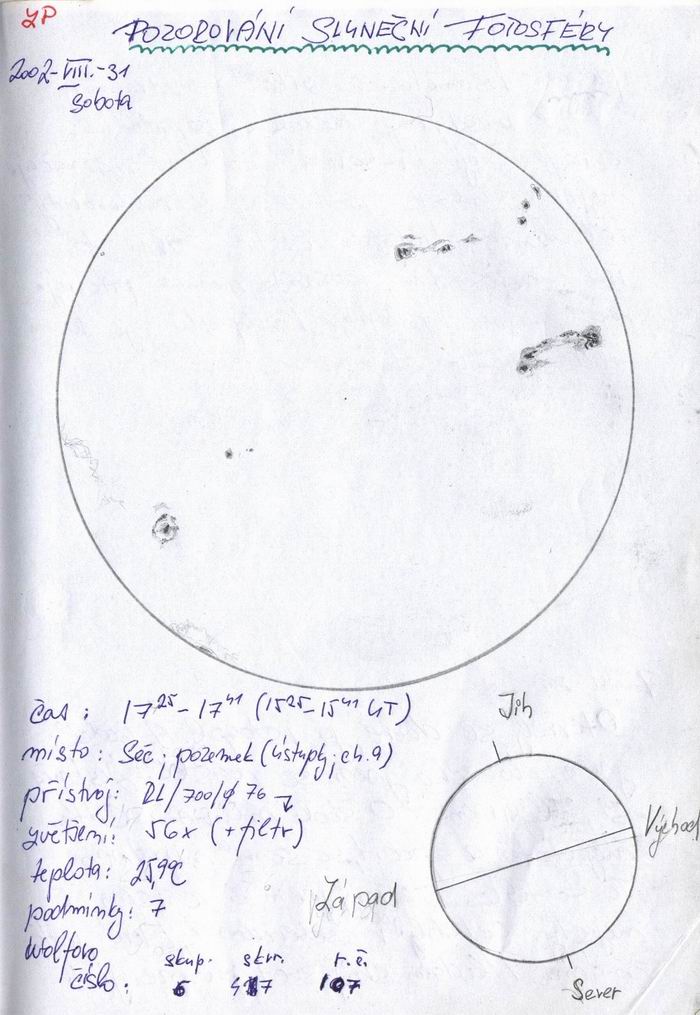 ZP
POZOROVÁNÍ SLUNEČNÍ FOTOSFÉRY
2002-VIII.-31
Sobota
čas: 17²⁵-17⁴¹ (15²⁵-15⁴¹ UT)
místo: Seč; pozemek (ústupky; ch.9)
přístroj: RL/700/ϕ 76
zvětšení: 56x (+filtr)
teplota: 25,9°C
podmínky: 7
Wolfovo
číslo:
skup. skvr. r.č.
6 47 107
Jih
Východ
Západ
Sever